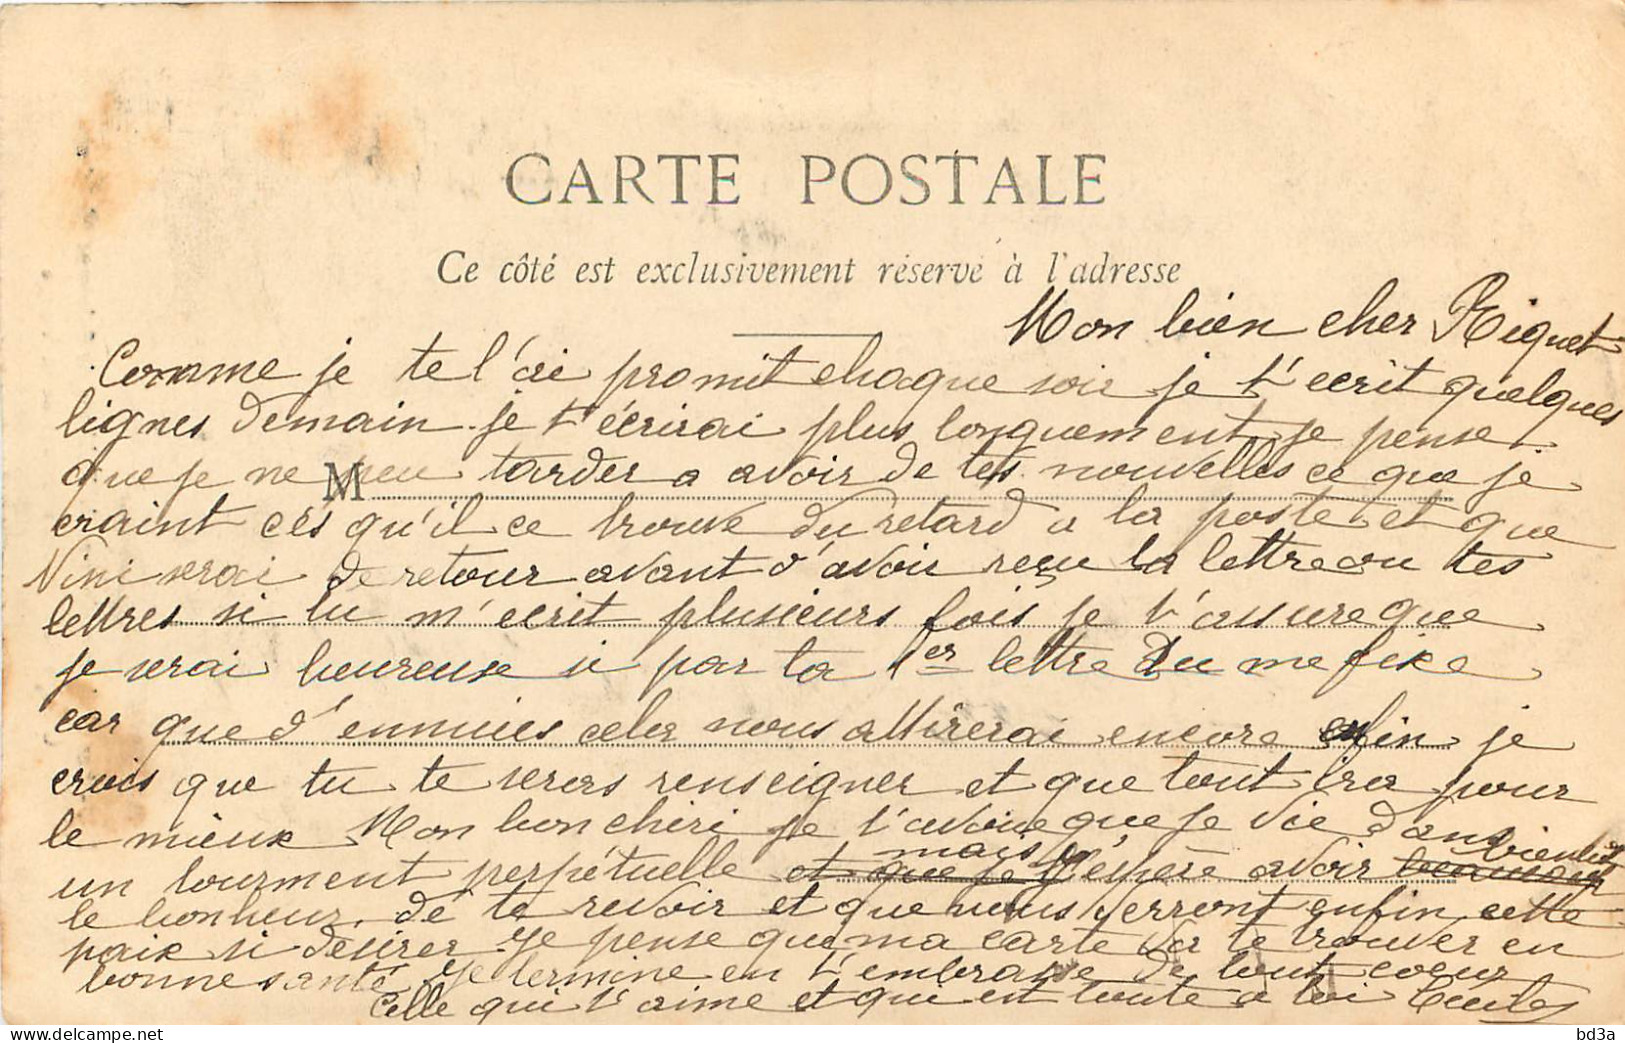 CARTE POSTALE
Ce côté est exclusivement réservé à l'adresse
Mon bien cher Riquet
Comme je te l'ai promit chaque soir je t'ecrit quelques
lignes demain je t'écrirai plus longuement je pense
que je ne peu tarder a avoir de tes nouvelles ce que je
M
craint c'és qu'il ce trouve du retard a la poste et que
Nini serai de retour avant d'avoir reçu la lettre ou tes
lettres si tu m'ecrit plusieurs fois je t'assure que
je serai heureuse si par ta 1er lettre du me fixe
car que d'ennuies cela nous attirerai encore enfin je
crois que tu te seras renseigner et que tout ira pour
le mieux Mon bon chéri je t'avoue que je vie dans
un tourment perpétuelle et que je mais j'éspère avoir beaucoup bientôt
le bonheur de te revoir et que nous verront enfin cette
paix si désirer je pense que ma carte va te trouver en
bonne santé je termine en t'embrasse de tout coeur
Celle qui t'aime et qui est toute a toi
bd3a